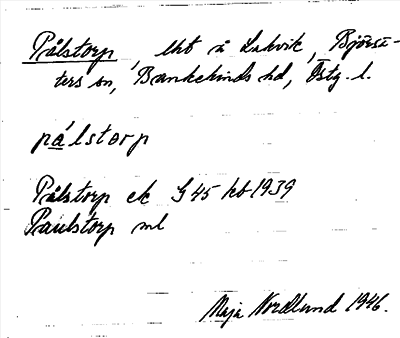 Pålstorp, lht å Lakvik, Björsä-
ters sn, Bankekinds hd, Östg. l.
pálstorp
Pålstorp ek G 45 kb 1939
Paulstorp ml
Maja Nordlund 1946.